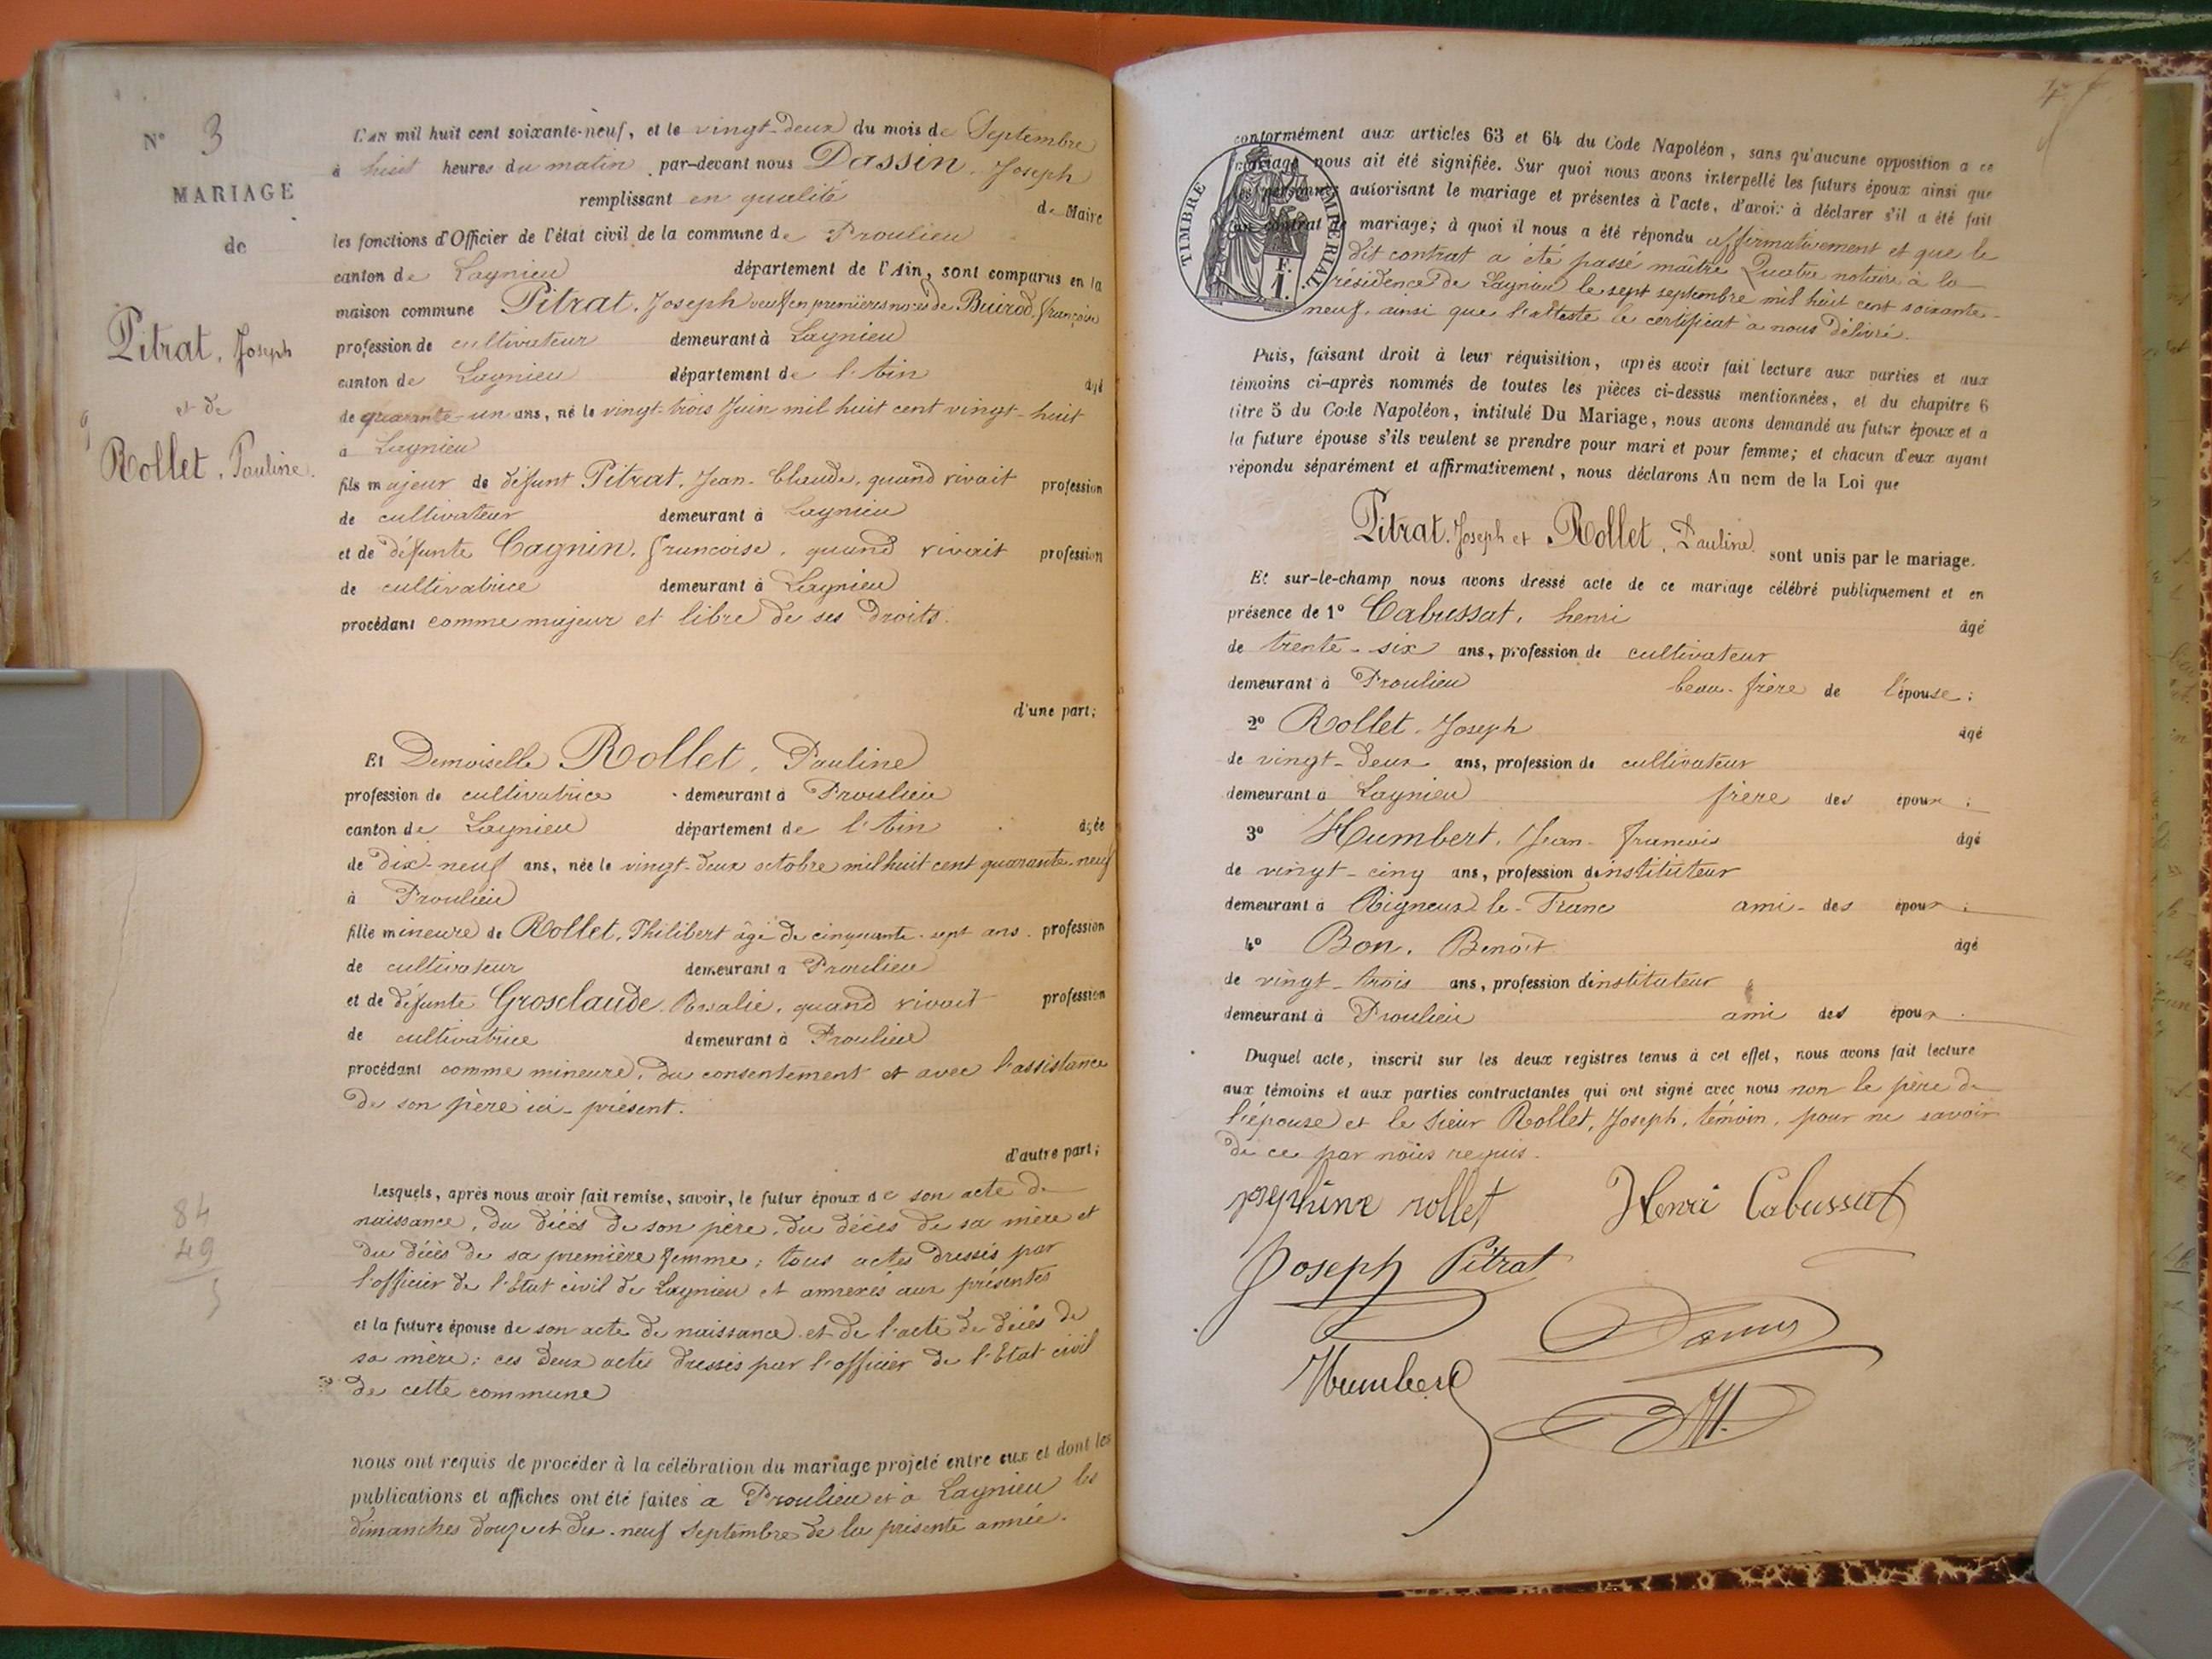 N° 3
MARIAGE
de
Pitrat, Joseph
et de
Rollet, Pauline.
84
49
5
L'AN mil huit cent soixante-neuf, et le vingt-deux du mois de Septembre
à huit heures du matin par-devant nous Dassin, Joseph
remplissant en qualité de Maire
les fonctions d'Officier de l'état civil de la commune de Proulieu
canton de Lagnieu département de l'Ain, sont comparus en la
maison commune Pitrat, Joseph veuf en premières noces de Buirod, françoise
profession de cultivateur demeurant à Lagnieu
canton de Lagnieu département de l'Ain âgé
de quarante-un ans, né le vingt-trois Juin mil huit cent vingt-huit
à Lagnieu
fils majeur de défunt Pitrat, Jean-Claude, quand vivait profession
de cultivateur demeurant à Lagnieu
et de défunte Cagnin, françoise, quand vivait profession
de cultivatrice demeurant à Lagnieu
procédant comme majeur et libre de ses droits.
d'une part;
Et Demoiselle Rollet, Pauline
profession de cultivatrice demeurant à Proulieu
canton de Lagnieu département de l'Ain âgée
de dix-neuf ans, née le vingt-deux octobre mil huit cent quarante-neuf
à Proulieu
fille mineure de Rollet, Philibert âgé de cinquante-sept ans. profession
de cultivateur demeurant à Proulieu
et de défunte Grosclaude Rosalie, quand vivait profession
de cultivatrice demeurant à Proulieu
procédant comme mineure, du consentement et avec l'assistance
de son père ici-présent.
d'autre part;
Lesquels, après nous avoir fait remise, savoir, le futur époux de son acte de
naissance, du décès de son père, du décès de sa mère et
du décès de sa première femme; tous actes dressés par
l'officier de l'Etat civil de Lagnieu et annexés aux présentes
et la future épouse de son acte de naissance et de l'acte de décès de
sa mère; ces deux actes dressés par l'officier de l'Etat civil
de cette commune
nous ont requis de procéder à la célébration du mariage projeté entre eux et dont les
publications et affiches ont été faites à Proulieu et à Lagnieu les
dimanches douze et dix-neuf Septembre de la présente année.
conformément aux articles 63 et 64 du Code Napoléon, sans qu'aucune opposition a ce
mariage nous ait été signifiée. Sur quoi nous avons interpellé les futurs époux ainsi que
les personnes autorisant le mariage et présentes à l'acte, d'avoir à déclarer s'il a été fait
un contrat de mariage; à quoi il nous a été répondu affirmativement et que le
dit contrat a été passé maître Quatre notaire à la
résidence de Lagnieu le sept septembre mil huit cent soixante-
neuf, ainsi que l'atteste le certificat à nous délivré.
TIMBRE IMPÉRIAL
F.
1.
Puis, faisant droit à leur réquisition, après avoir fait lecture aux parties et aux
témoins ci-après nommés de toutes les pièces ci-dessus mentionnées, et du chapitre 6
titre 5 du Code Napoléon, intitulé Du Mariage, nous avons demandé au futur époux et à
la future épouse s'ils veulent se prendre pour mari et pour femme; et chacun d'eux ayant
répondu séparément et affirmativement, nous déclarons Au nom de la Loi que
Pitrat, Joseph et Rollet, Pauline sont unis par le mariage.
Et sur-le-champ nous avons dressé acte de ce mariage célébré publiquement et en
présence de 1° Cabussat, henri âgé
de trente-six ans, profession de cultivateur
demeurant à Proulieu beau-frère de l'épouse;
2° Rollet, Joseph âgé
de vingt-deux ans, profession de cultivateur
demeurant à Lagnieu frère des époux;
3° Humbert, Jean-françois âgé
de vingt-cinq ans, profession d'instituteur
demeurant à Rigneux-le-Franc ami des époux;
4° Bon, Benoit âgé
de vingt-trois ans, profession d'instituteur
demeurant à Proulieu ami des époux.
Duquel acte, inscrit sur les deux registres tenus à cet effet, nous avons fait lecture
aux témoins et aux parties contractantes qui ont signé avec nous non le père de
l'épouse et le sieur Rollet, Joseph, témoin, pour ne savoir
de ce par nous requis.
josephine rollet Henri Cabussat
Joseph Pitrat
Humbert